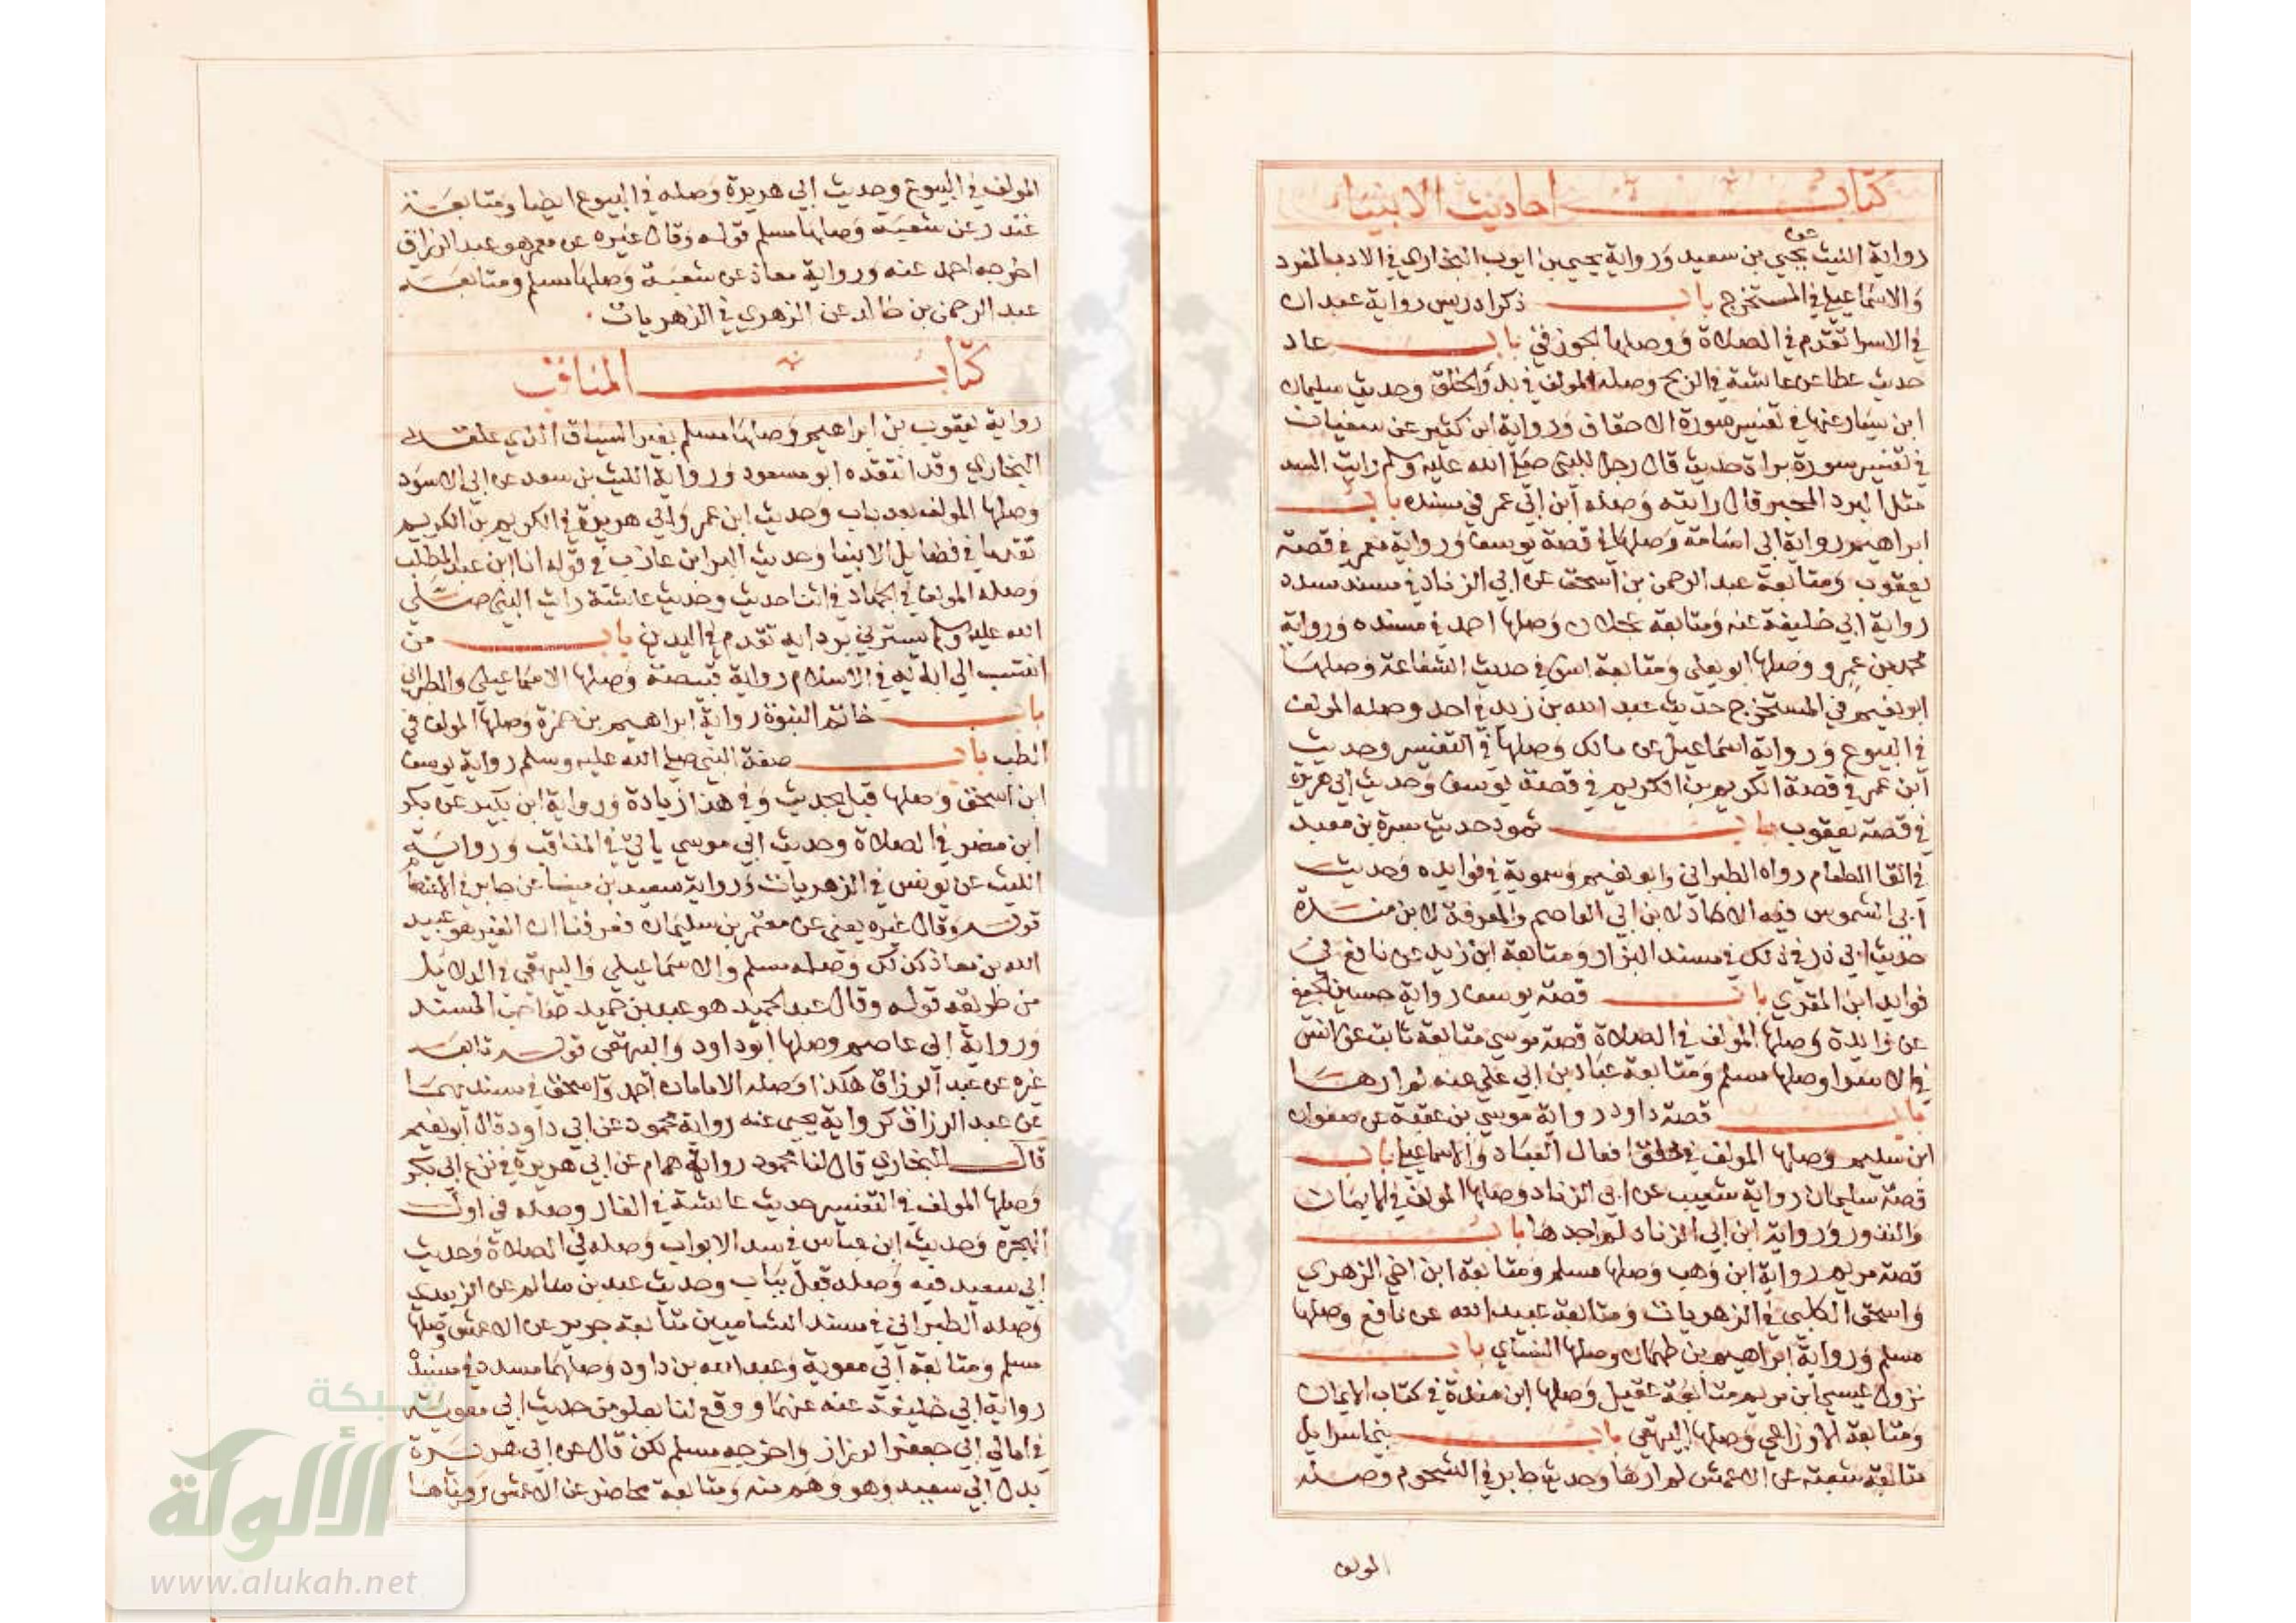 كتاب احاديث الانبياء
رواية الليث عن يحيى بن سعيد ورواية يحيى بن ايوب البخاري في الادب المفرد
والاسماعيلي في المستخرج باب ذكر ادريس رواية عبدان
في الاسرا تقدم في الصلاة ووصلها الجوزقي باب عاد
حديث عطا عن عائشة في الريح وصله المولف في بدؤ الخلق وحديث سليمان
ابن يسار عنها في تفسير سورة الاحقاف ورواية ابن كثير عن سفيان
في تفسير سورة براة حديث قال رجل للنبي صلى الله عليه وسلم رايت السد
مثل البرد المحبر قال رايته وصله ابن ابي عمر في مسنده باب
ابراهيم رواية ابي اسامة وصلها في قصة يوسف ورواية معمر في قصة
يعقوب ومتابعة عبد الرحمن بن اسحق عن ابي الزناد في مسند مسدد
رواية ابي خليفة عنه ومتابعة عجلان وصلها احمد في مسنده ورواية
محمد بن عمرو وصلها ابو يعلى ومتابعة انس في حديث الشفاعة وصلها
ابو نعيم في المستخرج حديث عبد الله بن زيد في احد وصله المولف
في البيوع ورواية اسماعيل عن مالك وصلها في التفسير وحديث
ابن عمر في قصة الكريم بن الكريم في قصة يوسف وحديث ابي هريرة
في قصة يعقوب باب ثمود حديث سبرة بن معبد
في القا الطعام رواه الطبراني وابو نعيم وسمويه في فوايده وحديث
ابي الشموس فيه الاحاد لابن ابي العاصم والمعرفة لابن مندة
حديث ابي ذر في ذلك في مسند البزار ومتابعة ابن زيد عن نافع في
فوايد ابن المقري باب قصة يوسف رواية حسين الجعفي
عن زايدة وصلها المولف في الصلاة قصة موسى متابعة ثابت عن انس
في الاسرا وصلها مسلم ومتابعة عباد بن ابي علي عنه لم ارها
باب قصة داود رواية موسى بن عقبة عن صفوان
ابن سليم وصلها المولف في خلق افعال العباد والاسماعيلي باب
قصة سليمان رواية شعيب عن ابي الزناد وصلها المولف في الايمان
والنذور ورواية ابن ابي الزناد لم اجدها باب
قصة مريم رواية ابن وهب وصلها مسلم ومتابعة ابن اخي الزهري
واسحق الكلبي في الزهريات ومتابعة عبيد الله عن نافع وصلها
مسلم ورواية ابراهيم بن طهمان وصلها النساي باب
نزول عيسى ابن مريم متابعة عقيل وصلها ابن مندة في كتاب الايمان
ومتابعة الاوزاعي وصلها البيهقي باب بني اسرايل
متابعة شعبة عن الاعمش لم ارها وحديث جابر في الشحوم وصله
المولف
المولف في البيوع وحديث ابي هريرة وصله في البيوع ايضا ومتابعة
غندر عن شعبة وصلها مسلم قوله وقال غيره عن معمر هو عبد الرزاق
اخرجه احمد عنه ورواية معاذ عن شعبة وصلها مسلم ومتابعة
عبد الرحمن بن خالد عن الزهري في الزهريات
كتاب المناقب
رواية يعقوب بن ابراهيم وصلها مسلم بغير السياق الذي علقه
البخاري وقد انتقده ابو مسعود ورواية الليث بن سعد عن ابي الاسود
وصلها المولف بعد باب وحديث ابن عمر وابي هريرة في الكريم بن الكريم
تقدما في فضايل الانبيا وحديث البرا بن عازب في قوله انا ابن عبد المطلب
وصله المولف في الجهاد في اثنا حديث وحديث عائشة رايت النبي صلى
الله عليه وسلم يسترني بردايه تقدم في العيدين باب من
انتسب الى ابايه في الاسلام رواية قبيصة وصلها الاسماعيلي والطبراني
باب خاتم النبوة رواية ابراهيم بن حمزة وصلها المولف في
الطب باب صفة النبي صلى الله عليه وسلم رواية يوسف
ابن اسحق وصلها قبل بحديث وفي هذا زيادة ورواية ابن بكير عن بكر
ابن مضر في الصلاة وحديث ابي موسى ياتي في المناقب ورواية
الليث عن يونس في الزهريات ورواية سعيد بن مينا عن جابر في الاعتصام
قوله وقال غيره يعني عن معتمر بن سليمان فعرفنا ان الغير هو عبيد
الله بن معاذ كذلك وصله مسلم والاسماعيلي والبيهقي في الدلايل
من طريقه قوله وقال عبد الحميد هو عبد بن حميد صاحب المسند
ورواية ابي عاصم وصلها ابو داود والبيهقي قوله تابعه
غيره عن عبد الرزاق هكذا وصله الامامان احمد واسحق في مسنديهما
عن عبد الرزاق كرواية يحيى عنه رواية محمود عن ابي داود قال ابو نعيم
قال البخاري قال لنا محمود رواية همام عن ابي هريرة في نزع ابي بكر
وصلها المولف في التفسير حديث عائشة في الغار وصله في اول
الهجرة وحديث ابن عباس في سد الابواب وصله في الصلاة وحديث
ابي سعيد فيه وصله قبل بباب وحديث عبد بن سالم عن الزبيدي
وصله الطبراني في مسند الشاميين متابعة جرير عن الاعمش وصلها
مسلم ومتابعة ابي معوية وعبد الله بن داود وصلهما مسدد في مسنده
رواية ابي خليفة عنه عنهما ووقع لنا بعلو من حديث ابي معوية
في امالي ابي جعفر الرزاز واخرجه مسلم لكن قال عن ابي هريرة
بدل ابي سعيد وهو وهم منه ومتابعة محاضر عن الاعمش رويناها
شبكة
الألوكة
www.alukah.net